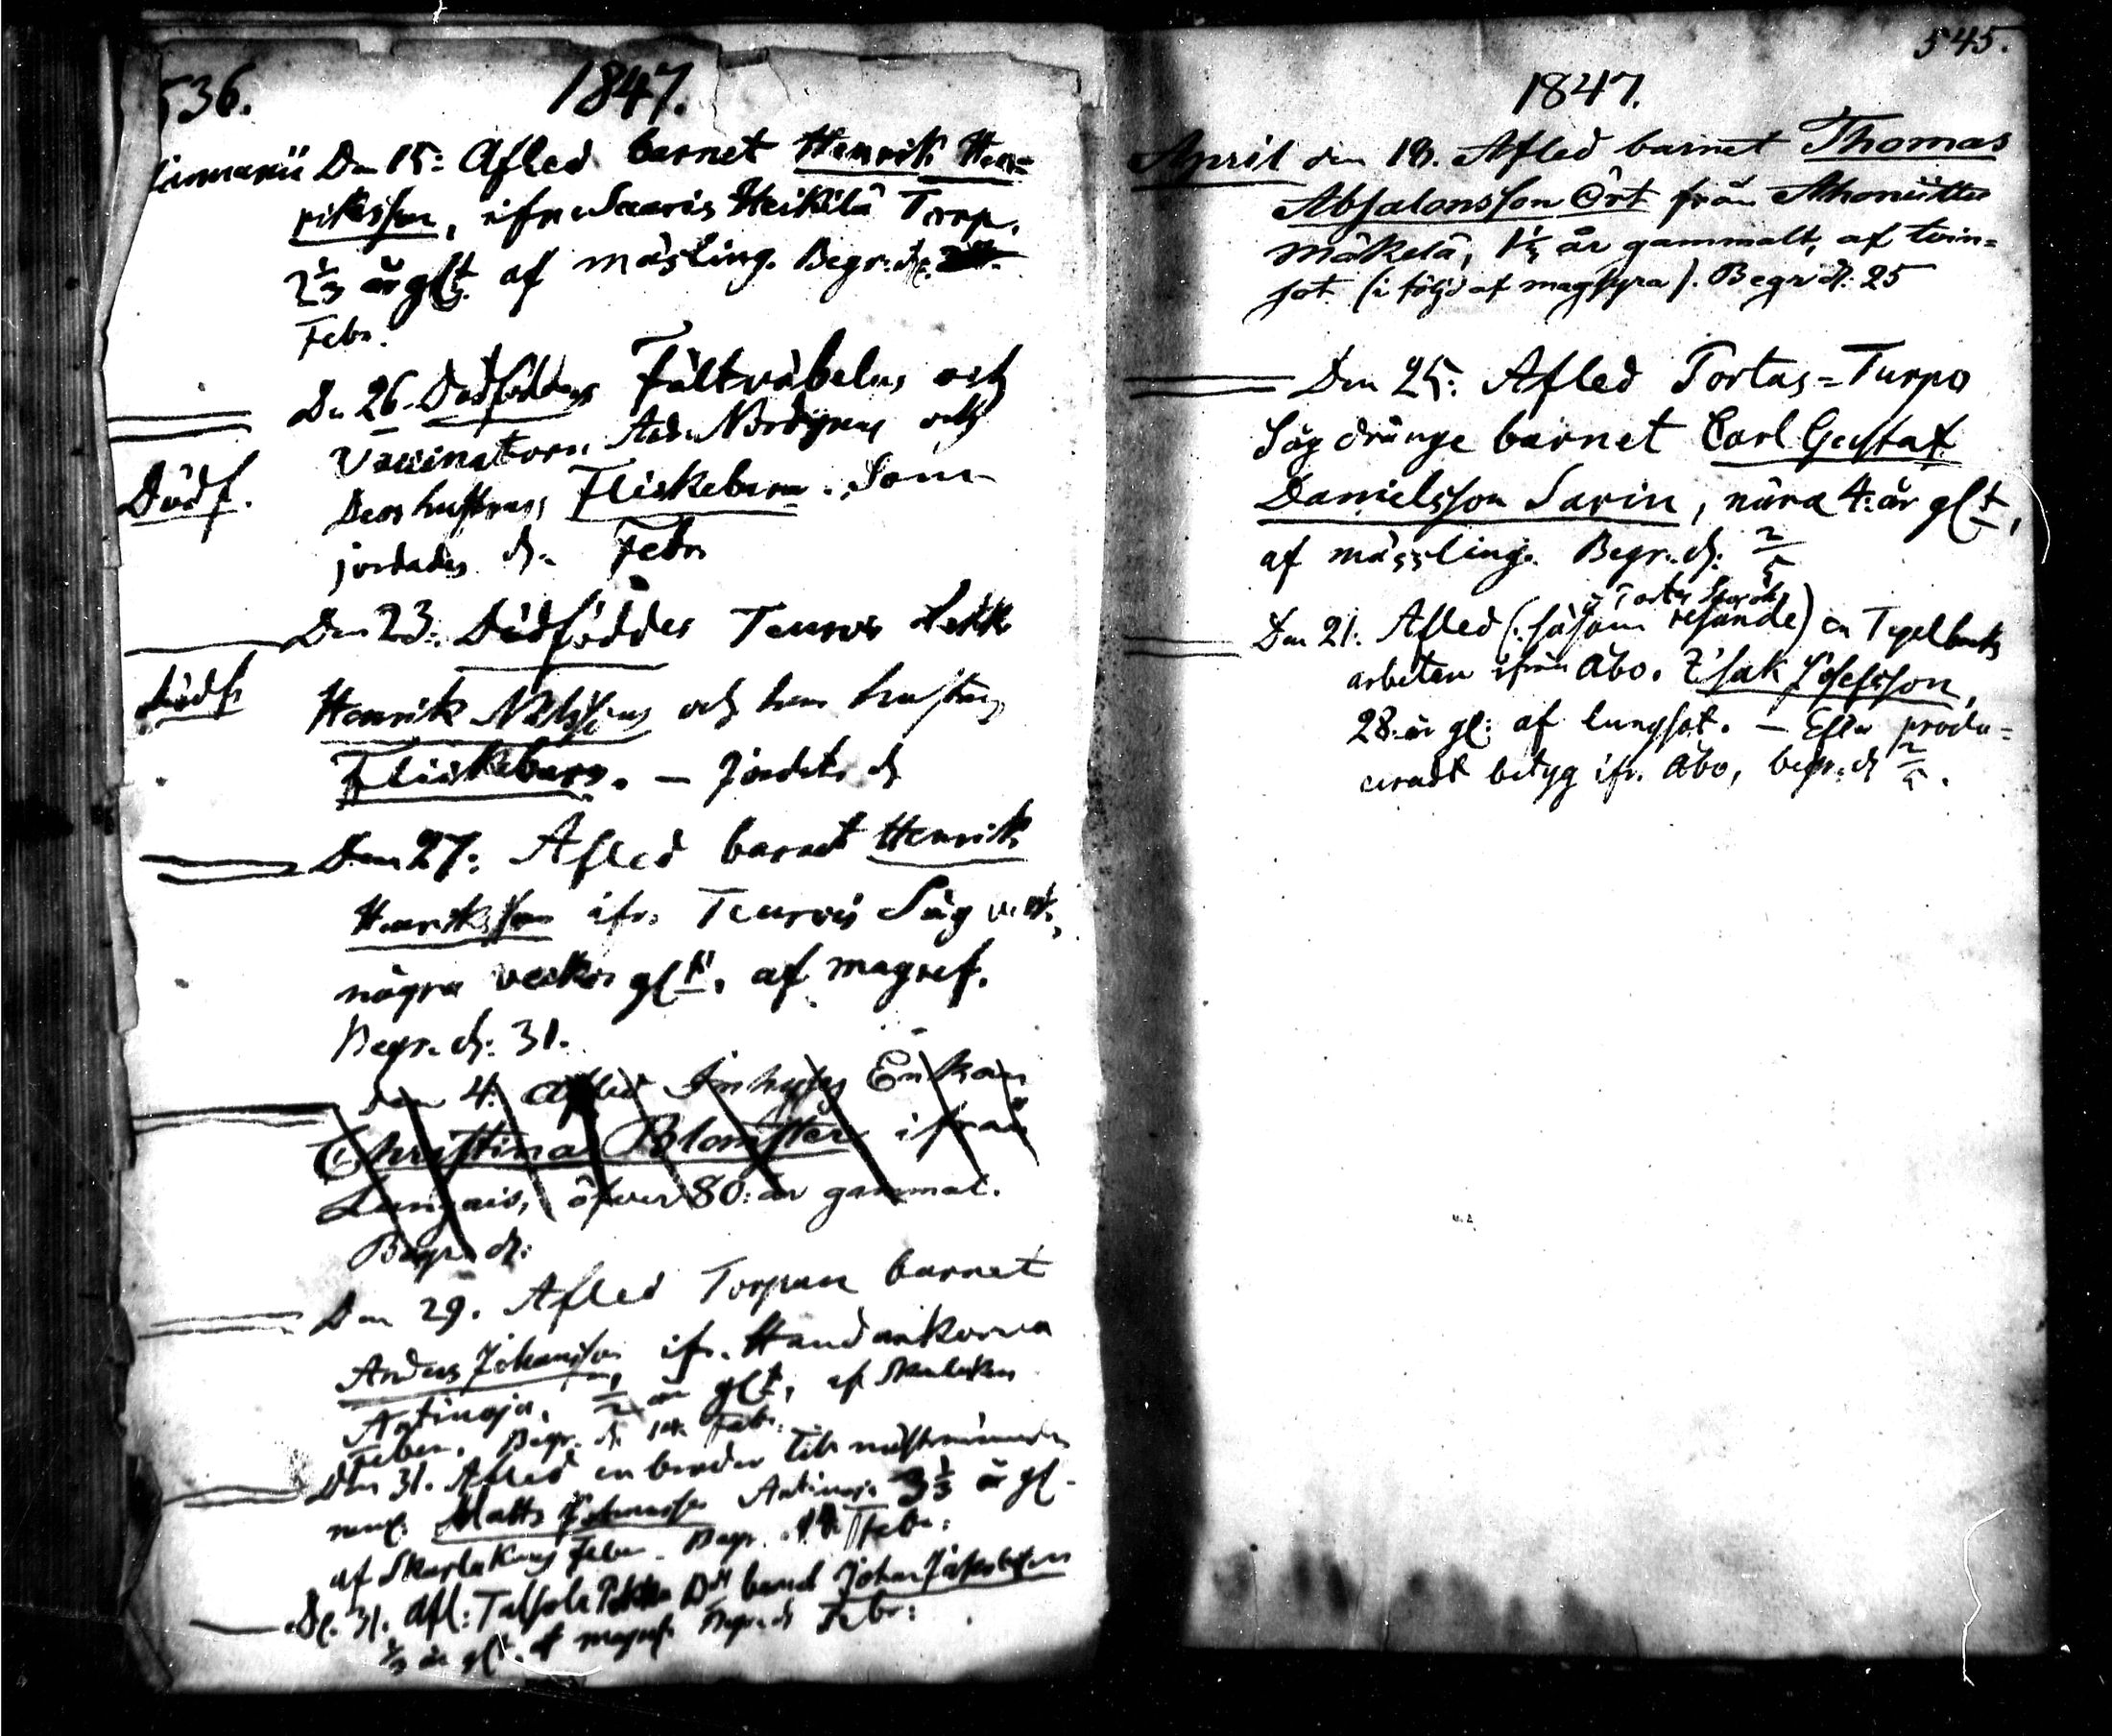 536.
1847.
Den 15: Afled barnet Henrik Hen=
riksson, ifrn Saaris Heikilä Torp,
2 1/3 år glt. af mässling. Begr. d.
Febr.
D. 26. Dödföddes Fältväbelns och
Vaccinatorn Nordgrens och
Dess hustrus Flickebarn. Som
jordades d. Febr
Dödf.
Den 23: Dödföddes Teuros
Dödf.
Henrik Nilssons och hans hustrus
Flickebarn. — Jordats d
Den 27: Afled barnet Henrik
Henriksson ifr. Teurois Såg verk,
några veckor glt, af magref.
Begr. d: 31.
Den 4: Afled Inhyses Enkan
Christina Blomster ifrån
Lungais, öfver 80: år gammal.
Begr. d:
Den 29. Afled Torpare barnet
Anders Johansson ifr.
Antinoja, 1/2 år glt, af
Feber. Begr. d. 14 Febr.
Den 31. Afled en broder till
Matts Johansson Antinoja 3 1/3 år gl.
af Skarlakans Feber. Begr. 14 Febr.
D. 31. Afl: barnet Johan Jakobsson
år glt. af magref. Begr. d Febr:
545.
1847.
April den 18. Afled barnet Thomas
Absalonsson Ört från
Mäkelä, 1 1/2 år gammalt, af tvin=
sot (i följd af magsyra). Begr d. 25
Den 25: Afled Portas=Turpo
Sågdränge barnet Carl Gustaf
Danielsson Sarin, nära 4: år glt,
af mässling. Begr. d. 2/5
Den 21: Afled (: såsom resande) en Tegelbruks
arbetare ifrån Åbo. Isak Josefsson,
28. år gl: af lungsot. — Efter produ=
ceradt betyg ifr. Åbo, begr. d 2/5.